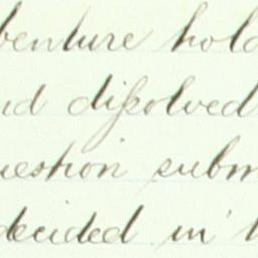 benture hold
nd dissolved
uestion subm
decided in